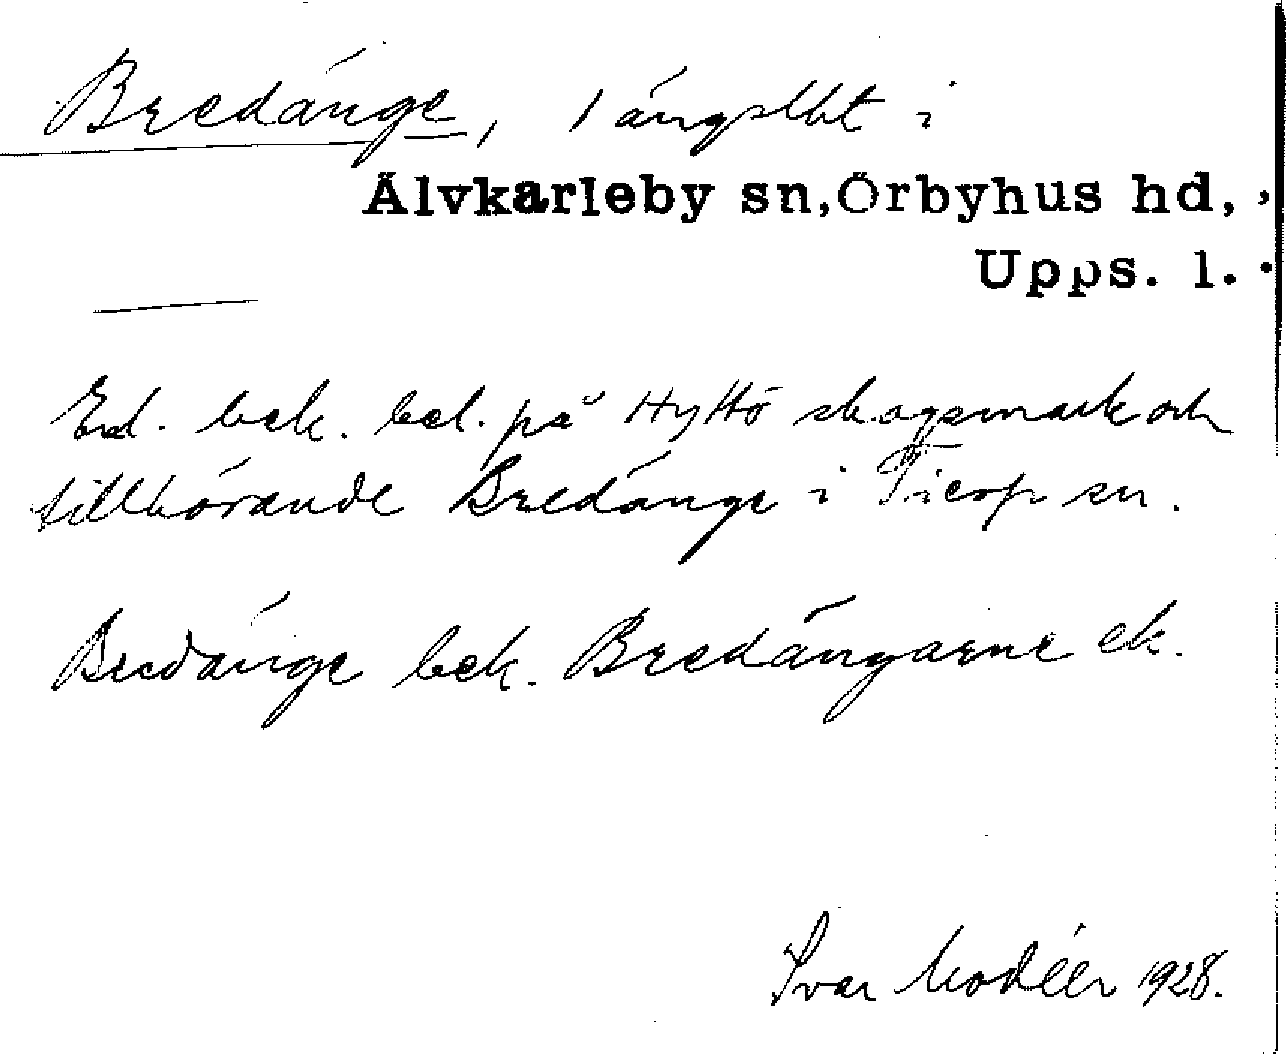 Bredänge, 1 ängslht i
Älvkarleby sn, Örbyhus hd,
Upps. l.
Ed. bek. bel. på Hyttö skogsmark och
tillhörande Bredänge i Tierp sn.
Bredänge bek. Bredängarne ek.
Ivar Modéer 1928.